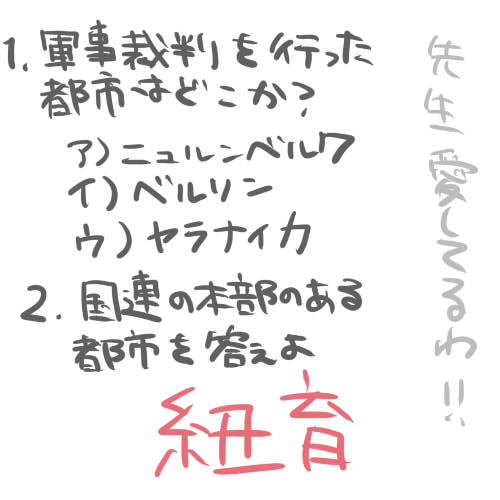 1. 軍事裁判を行った
都市はどこか?
ア) ニュルンベルク
イ) ベルリン
ウ) ヤラナイカ
2. 国連の本部のある
都市を答えよ
紐育
先生愛してるわ!!